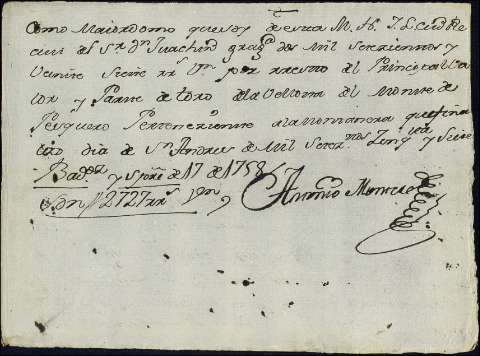 Como Maiordomo que soy de esta M. N. Y L. Ciudad Re
civi del Sr. Dn. Juachin grag.ª dos Mil setezientos y
Veinte Siete rr.s Vn. por rresto del Principal Va
lor y Parte de toro de la Vellota del Monte de
Pesquero Perteneziente a la Montanera que fina
lizo dia de Sn. Andres de Mil Setez.nos Zinq.ta y Seiete
Bad.oz y 17 de 1758
Son 2727 rr.s Vn.
Antonio Montero